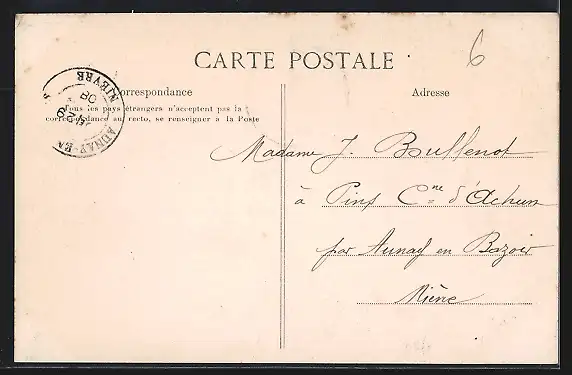 6
CARTE POSTALE
Correspondance
Tous les pays étrangers n'acceptent pas la
correspondance au recto, se renseigner à la Poste
NIEVRE
08
AUNAY-EN
Adresse
Madame J. Bullenot
à Pins Cne d'Achun
par Aunay en Bazois
Nièvre